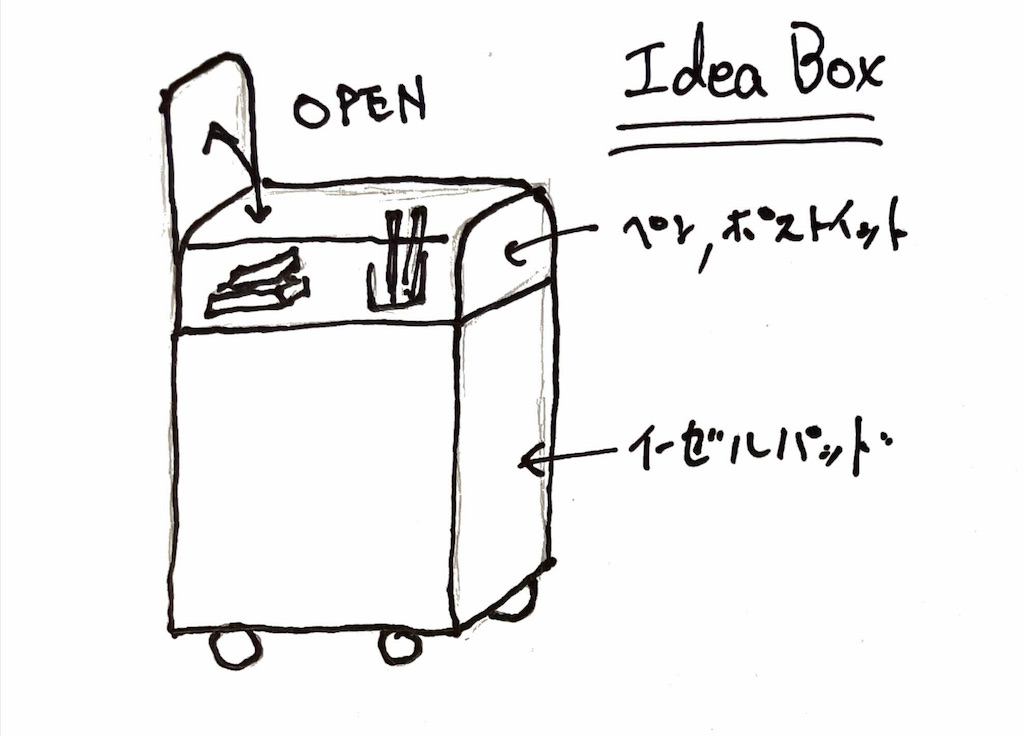 Idea Box
OPEN
ペン,ポストイット
イーゼルパッド